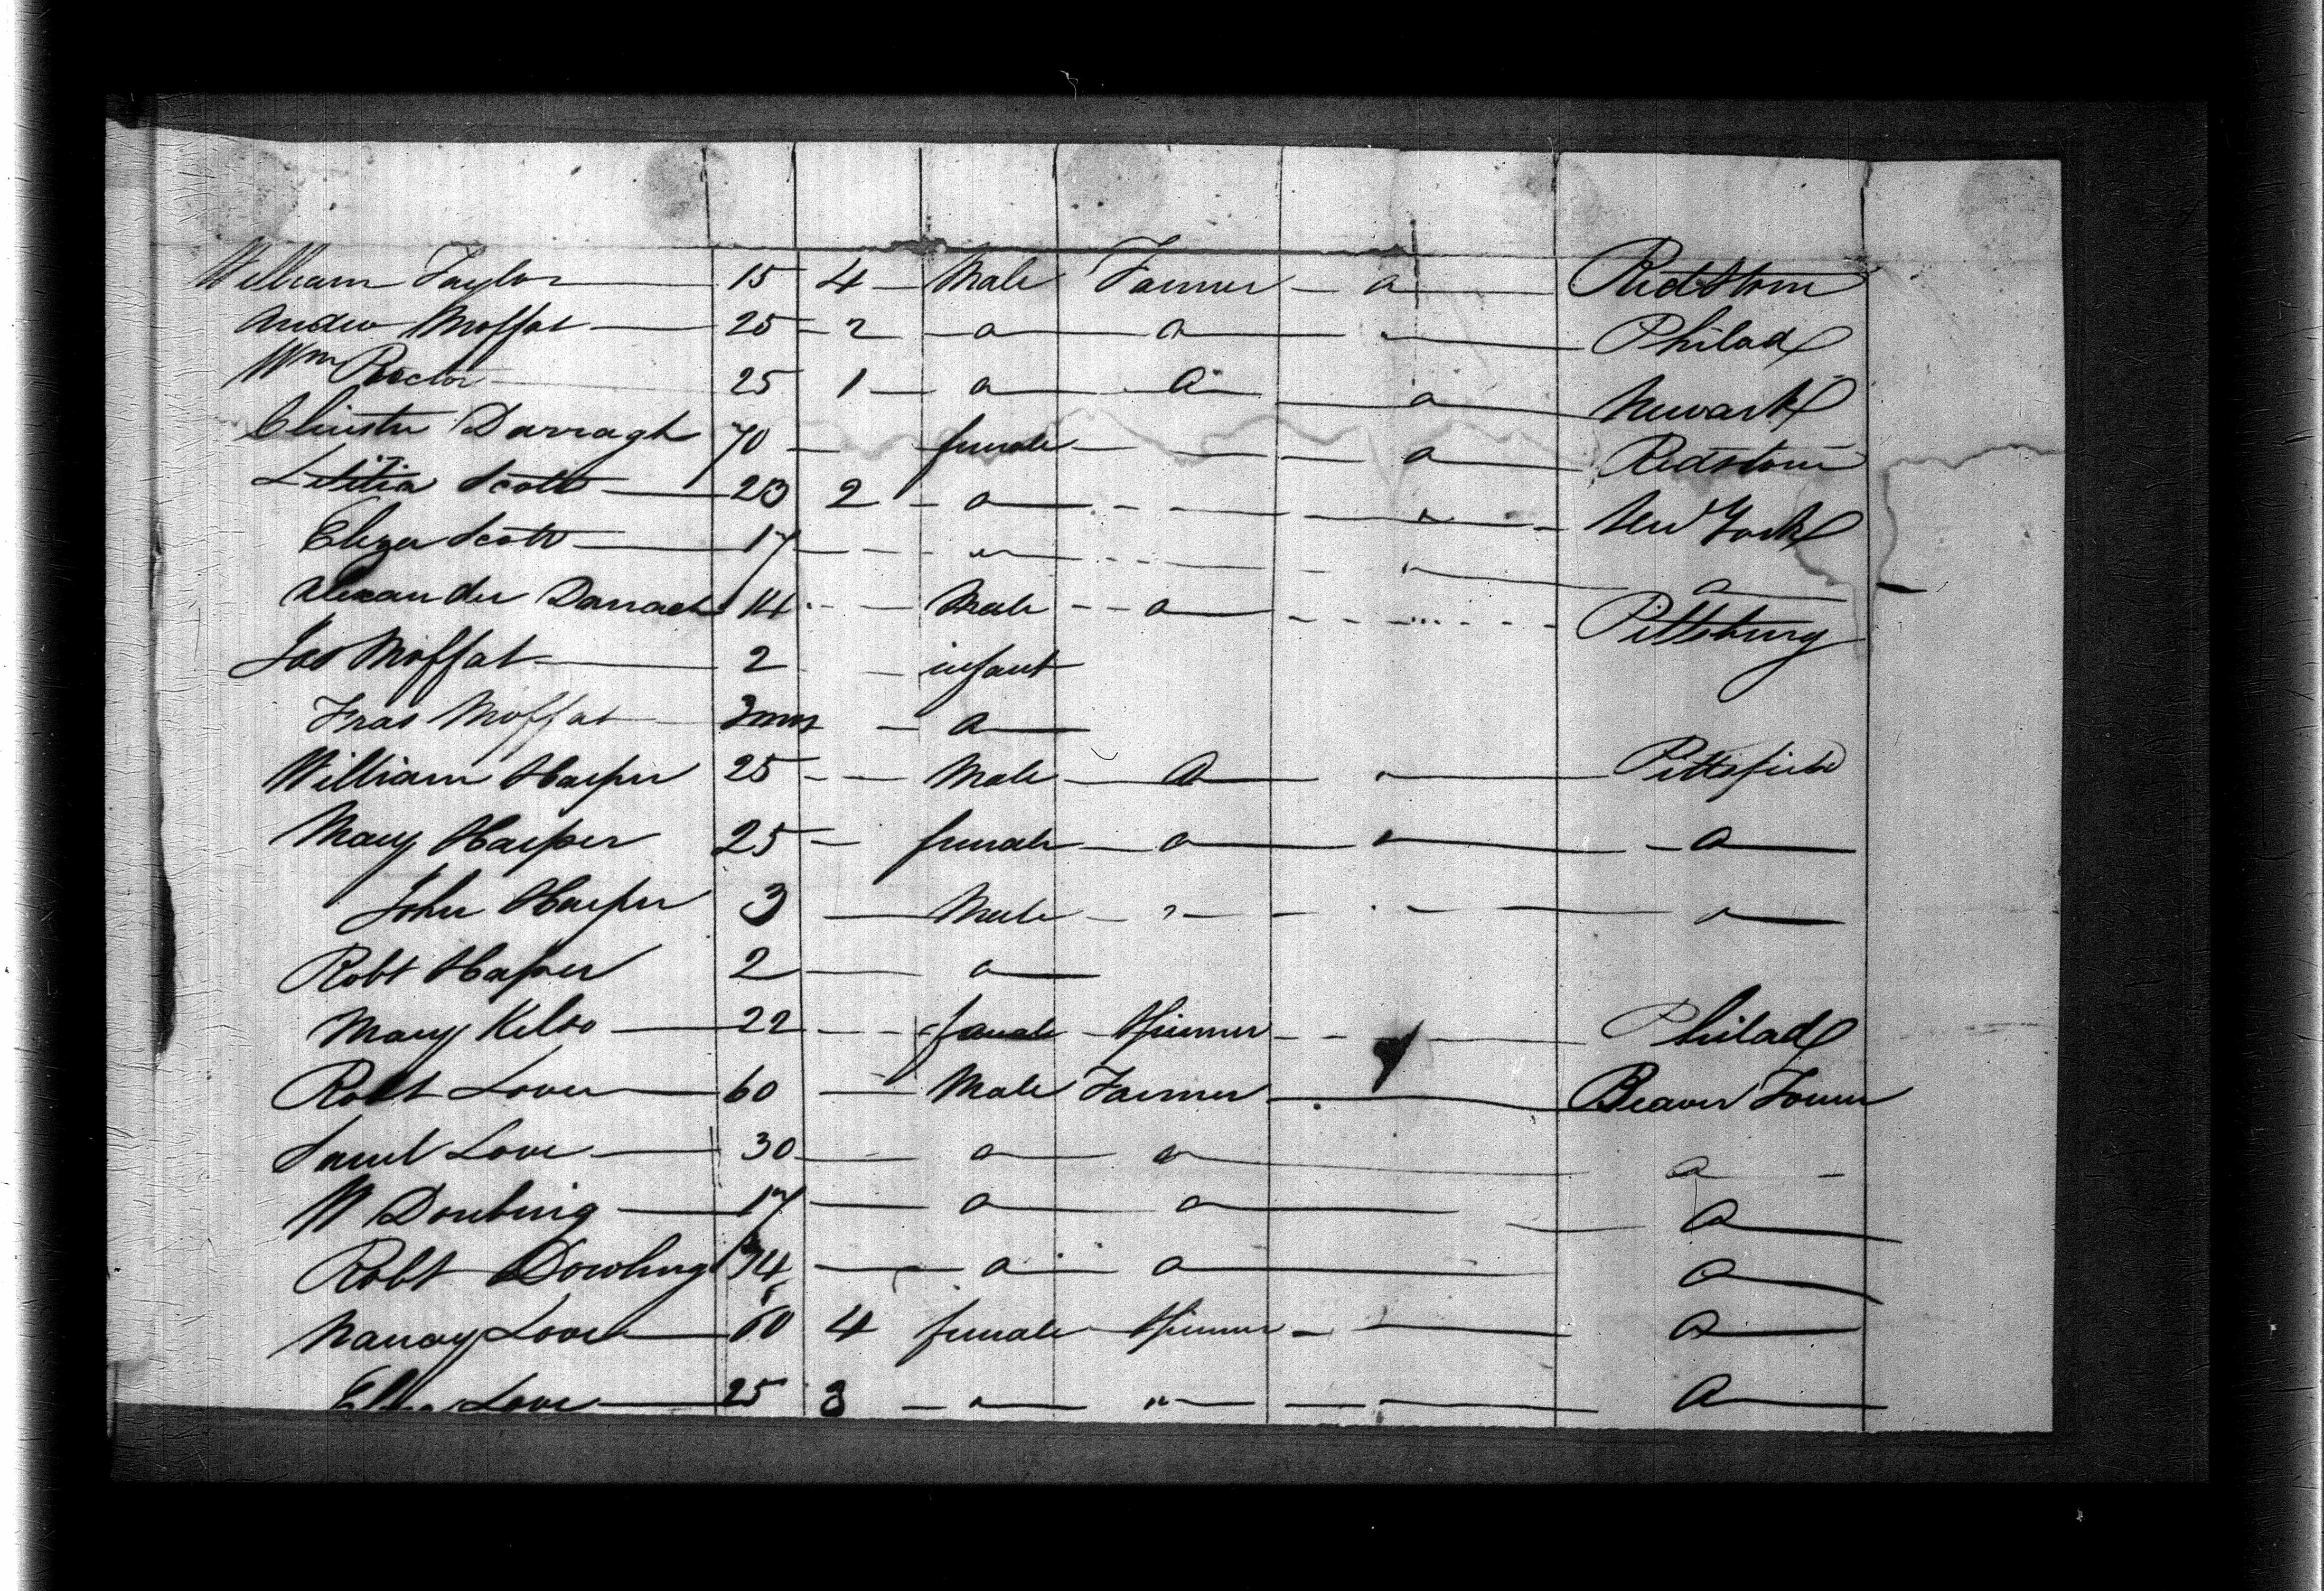 William Taylor 15 4 Male Farmer a Redstone
Andw Moffat 25 2 a a " Philad
Wm Rector 25 1 a a a Newark
Darragh 70 female a Redstone
Letitia Scott 20 2 a " New York
Eliza Scott 17 " " a
Alexander Darrach 14 Male a " Pittsburg
Jas Moffat 2 infant
Fras Moffat 3 mos a
William Harper 25 Male a " Pittsfield
Mary Harper 25 female a " a
John Harper 3 Male " a
Robt Harper 2 a
Mary Kelso 22 female Spinner Philad
Robt Love 60 Male Farmer Beaver Town
Saml Love 30 a a a
W 17 a a a
Robt Dowling 34 a a a
Nancy Love 60 4 female Spinner a
Eliza Love 25 3 " " a